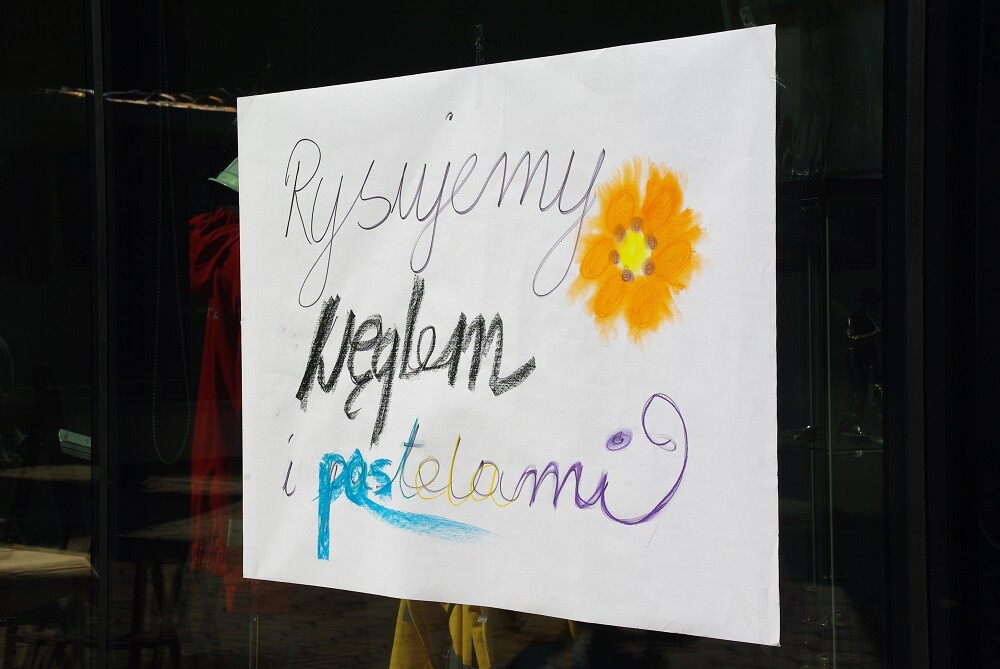 Rysujemy
węglem
i pastelami